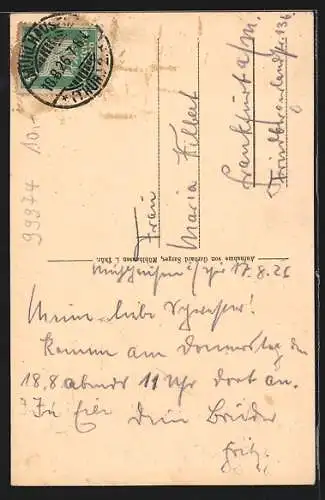 MÜHLHAUSEN
18.8.26
(THÜR.)
99374 10,-
Frau
Maria Hilbert
Frankfurt a/m.
Friedbergerlandstr. 136
Aufnahme von Gerhard Sarges, Mühlhausen i. Thür.
Mühlhausen i/Thür 17.8.26
Meine liebe Schwester!
Komme am Donnerstag den
18.8 abends 11 Uhr dort an.
In Eile Dein Bruder
Fritz.